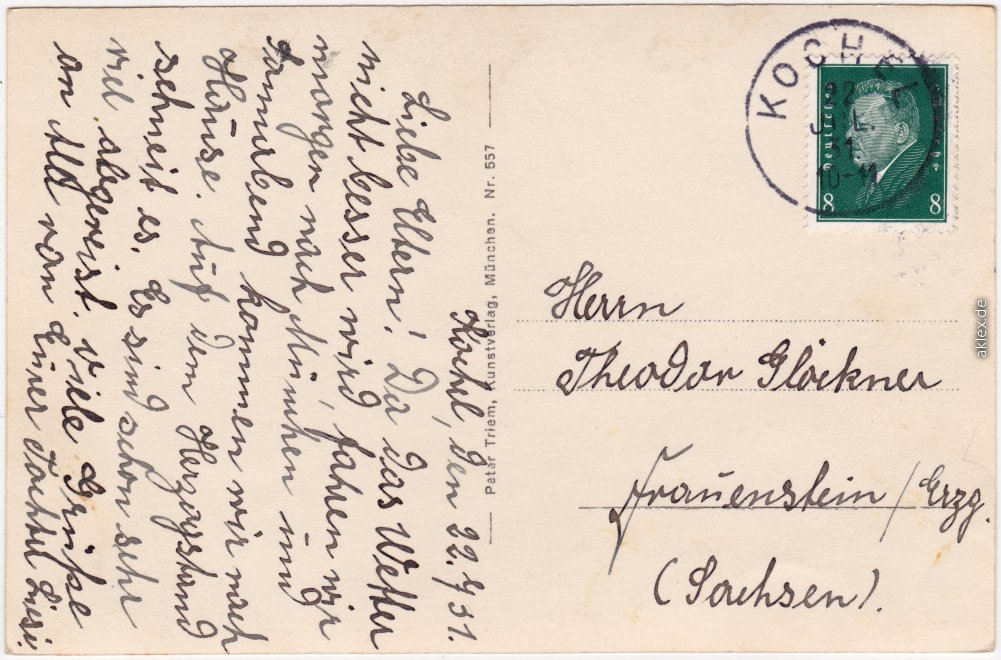 Kochel, den 22.7.31.
Liebe Eltern! Da das Wetter
nicht besser wird, fahren wir
morgen nach München und
Sonnabend kommen wir nach
Hause. Auf dem Herzogstand
schneit es. Es sind schon sehr
viel abgereist. Viele Grüße
an All von Eurer Tochter
Peter Triem, Kunstverlag, München. Nr. 557
KOCHEL
22
JUL.
10-11
Deutsches
8 8
Herrn
Theodor Glöckner
Frauenstein / Erzg.
(Sachsen).
aklex.de